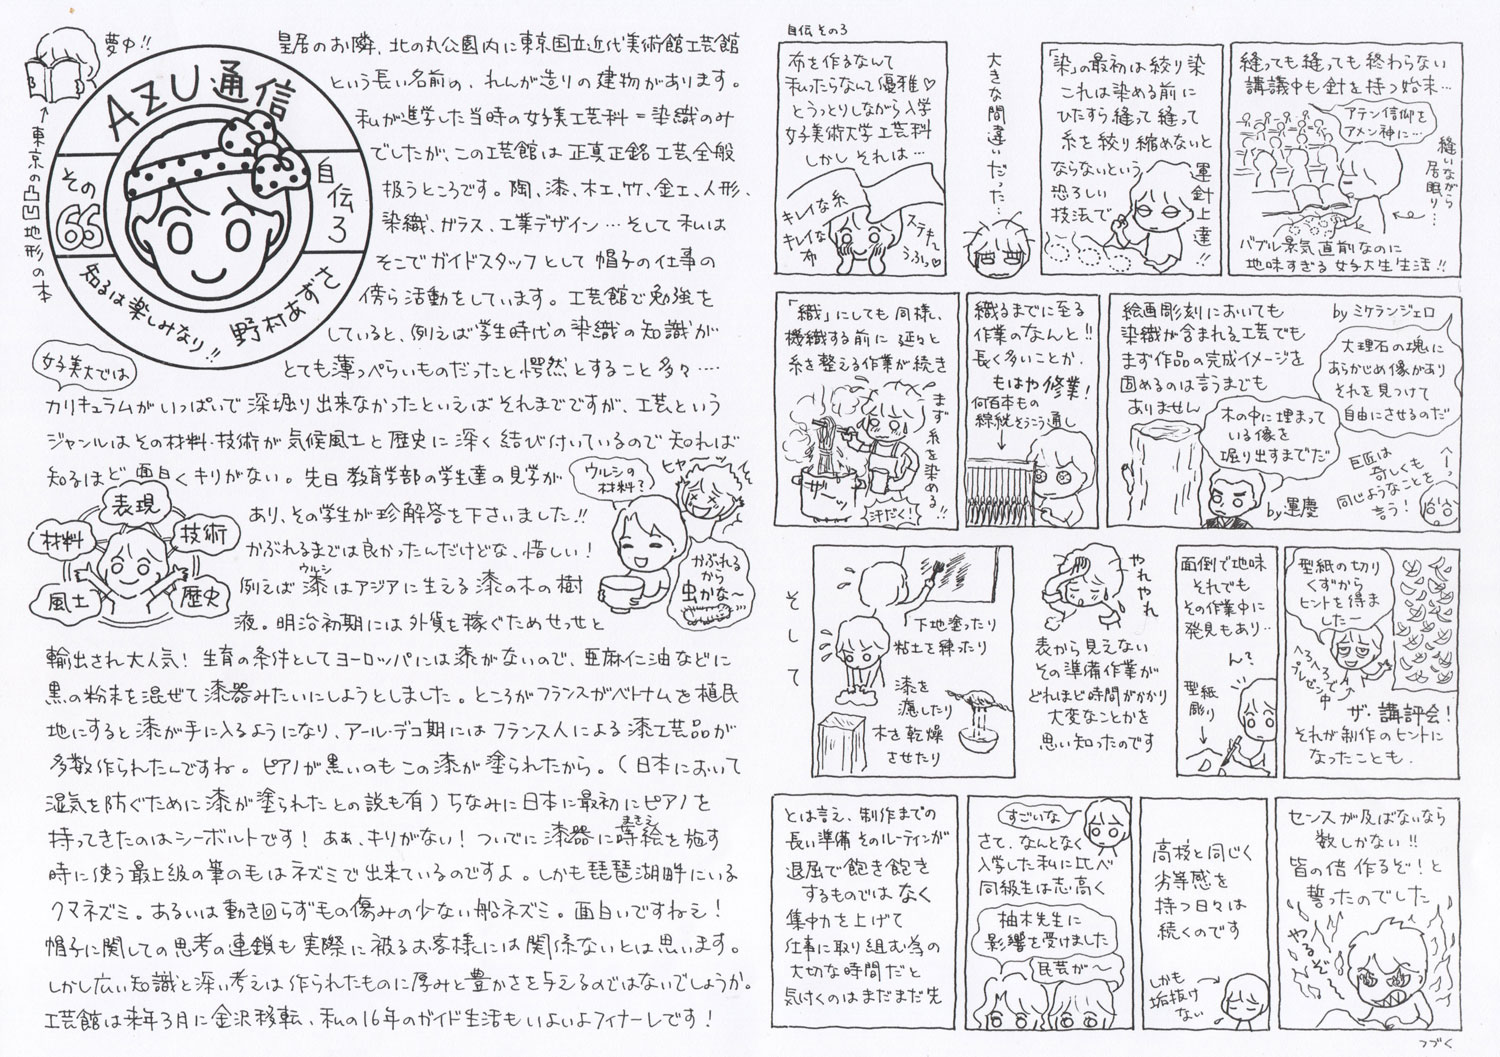 夢中!!
↑東京の凸凹地形の本
AZU通信
その65
自伝3
知るは楽しみなり!!
野村あずさ
皇居のお隣、北の丸公園内に東京国立近代美術館工芸館
という長い名前の、れんが造りの建物があります。
私が進学した当時の女子美工芸科=染織のみ
でしたが、この工芸館は正真正銘工芸全般
扱うところです。陶、漆、木工、竹、金工、人形、
染織、ガラス、工業デザイン…そして私は
そこでガイドスタッフとして帽子の仕事の
傍ら活動をしています。工芸館で勉強を
していると、例えば学生時代の染織の知識が
とても薄っぺらいものだったと愕然とすること多々‥‥
女子美大では
カリキュラムがいっぱいで深堀り出来なかったといえばそれまでですが、工芸という
ジャンルはその材料・技術が気候風土と歴史に深く結び付いているので知れば
知るほど面白くキリがない。先日教育学部の学生達の見学が
あり、その学生が珍解答を下さいました!!
かぶれるまでは良かったんだけどな、惜しい!
例えば漆はアジアに生える漆の木の樹
ウルシ
液。明治初期には外貨を稼ぐためせっせと
表現
材料
技術
風土
歴史
ウルシの
材料?
ヒャ〜
かぶれる
から
虫かな〜
輸出され大人気!生育の条件としてヨーロッパには漆がないので、亜麻仁油などに
黒の粉末を混ぜて漆器みたいにしようとしました。ところがフランスがベトナムを植民
地にすると漆が手に入るようになり、アール・デコ期にはフランス人による漆工芸品が
多数作られたんですね。ピアノが黒いのもこの漆が塗られたから。(日本において
湿気を防ぐために漆が塗られたとの説も有)ちなみに日本に最初にピアノを
持ってきたのはシーボルトです!ああ、キリがない!ついでに漆器に蒔絵を施す
まきえ
時に使う最上級の筆の毛はネズミで出来ているのですよ。しかも琵琶湖畔にいる
クマネズミ。あるいは動き回らず毛の傷みの少ない船ネズミ。面白いですねえ!
帽子に関しての思考の連鎖も実際に被るお客様には関係ないとは思います。
しかし広い知識と深い考えは作られたものに厚みと豊かさを与えるのではないでしょうか。
工芸館は来年3月に金沢移転、私の16年のガイド生活もいよいよフィナーレです!
自伝その3
布を作るなんて
私ったらなんて優雅♡
とうっとりしながら入学
女子美術大学工芸科
しかしそれは…
キレイな糸
キレイな布
ステキ
うふっ♡
大きな間違いだった…
「染」の最初は絞り染
これは染める前に
ひたすら縫って縫って
糸を絞り縮めないと
ならないという
恐ろしい
技法で
運針上達!!
縫っても縫っても終わらない
講議中も針を持つ始末…
アテン信仰を
アメン神に…
縫いながら
居眠り…
バブル景気直前なのに
地味すぎる女子大生生活!!
「織」にしても同様、
機織する前に延々と
糸を整える作業が続き
まず糸を染める!!
ザーッ
汗だく!
織るまでに至る
作業のなんと!!
長く多いことか.
もはや修業!
何百本もの
綜絖そうこう通し
絵画彫刻においても
染織が含まれる工芸でも
まず作品の完成イメージを
固めるのは言うまでも
ありません
by ミケランジェロ
大理石の塊に
あらかじめ像があり
それを見つけて
自由にさせるのだ
木の中に埋まって
いる像を
堀り出すまでだ
by 運慶
巨匠は
奇しくも
同じようなことを
言う!
へーっ
そして
下地塗ったり
粘土を練ったり
漆を
濾したり
木を乾燥
させたり
やれやれ
表から見えない
その準備作業が
どれほど時間がかかり
大変なことかを
思い知ったのです
面倒で地味
それでも
その作業中に
発見もあり…
ん?
型紙
彫り
型紙の切り
くずから
ヒントを得ま
した〜
へろへろで
プレゼン中
ザ・講評会!
それが制作のヒントに
なったことも.
とは言え、制作までの
長い準備そのルーティンが
退屈で飽き飽き
するものではなく
集中力を上げて
仕事に取り組む為の
大切な時間だと
気付くのはまだまだ先
すごいな
さて、なんとなく
入学した私に比べ
同級生は志高く
柚木先生に
影響を受けました
民芸が〜
高校と同じく
劣等感を
持つ日々は
続くのです
しかも
垢抜け
ない
センスが及ばないなら
数しかない!!
皆の倍作るぞ!と
誓ったのでした
やるぞ
つづく